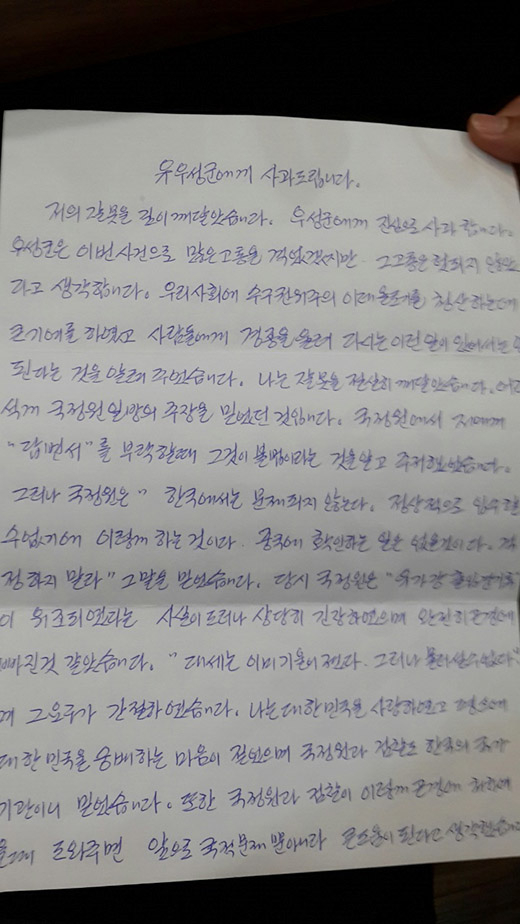 유우성군에게 사과드립니다.
저의 잘못을 깊이 깨달았습니다. 우성군에게 진심으로 사과 합니다.
우성군은 이번사건으로 많은고통을 격었겠지만 그고통은 헛되지 않았
다고 생각합니다. 우리사회에 수구권위주의 이데올로기를 청산하는데
큰기여를 하였고 사람들에게 경종을 울려 다시는 이런 일이 있어서는
된다는 것을 알려 주었습니다. 나는 잘못을 절실히 깨달았습니다.
석게 국정원 일방의 주장을 믿었던 것입니다. 국정원에서 저에게
"답변서"를 부탁할때 그것이 불법이라는 것을 알고 주저했었습니다.
그러나 국정원은 " 한국에서는 문제되지 않는다. 정상적으로 입수할
수없기에 이렇게 하는것이다. 중국에 확인하는 일은 없을것이다. 걱
정하지 말라" 그말을 믿었습니다. 당시 국정원은 "유가강
이 위조되였다는 사실이 드러나 상당히 긴장하였으며 완전히 곤경에
빠진것 같았습니다. " 대세는 이미 기울어졌다. 그러나
며 그요구가 간절하였습니다. 나는 대한민국을 사랑하였고 평소에
대한민국을 숭배하는 마음이 컸었으며 국정원과 검찰도 한국의 국가
기관이니 믿었습니다. 또한 국정원과 검찰이 이렇게 곤경에 처하여
도와주면 앞으로 국적문제 뿐아니라 큰도움이 된다고 생각했습니